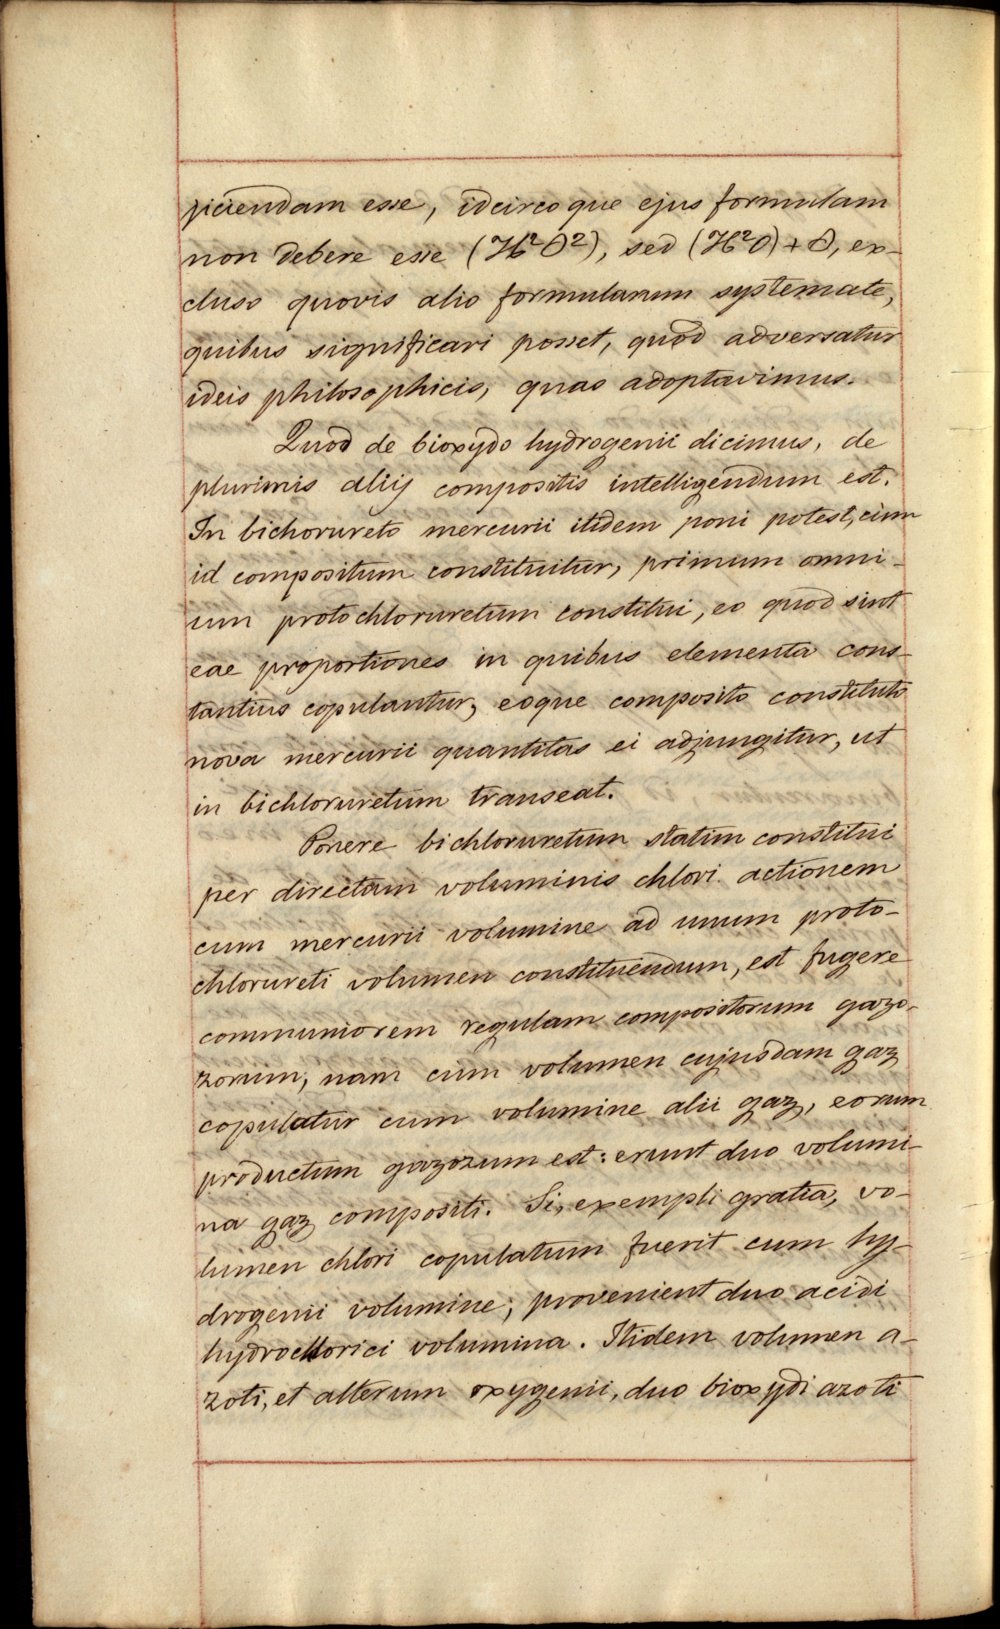 piciendam esse, idcircoque ejus formulam
non debere esse (H²O²), sed (H²O)+O, ex-
cluso quovis alio formularum systemate,
quibus significari posset, quod adversatur
ideis philosophicis, quas adoptavimus.
Quod de bioxydo hydrogenii dicimus, de
plurimis aliij compositis intelligendum est.
In bichorureto mercurii itidem poni potest, cum
id compositum constituitur, primum omni-
um protochloruretum constitui, eo quod sint
eae proportiones in quibus elementa cons-
tantius copulantur, eoque composito constituto
nova mercurii quantitas ei adjungitur, ut
in bichloruretum transeat.
Ponere bichloruretum statim constitui
per directam voluminis chlori actionem
cum mercurii volumine ad unum proto-
chlorureti volumen constituendum, est fugere
communiorem regulam compositorum gazo-
zorum, nam cum volumen cujusdam gaz
copulatur cum volumine alii gaz, eorum
productum gazozum est: erunt duo volumi-
na gaz compositi. Si, exempli gratia, vo-
lumen chlori copulatum fuerit cum hy-
drogenii volumine, provenient duo acidi
hydrochlorici volumina. Itidem volumen a-
zoti, et alterum oxygenii, duo bioxydi azoti